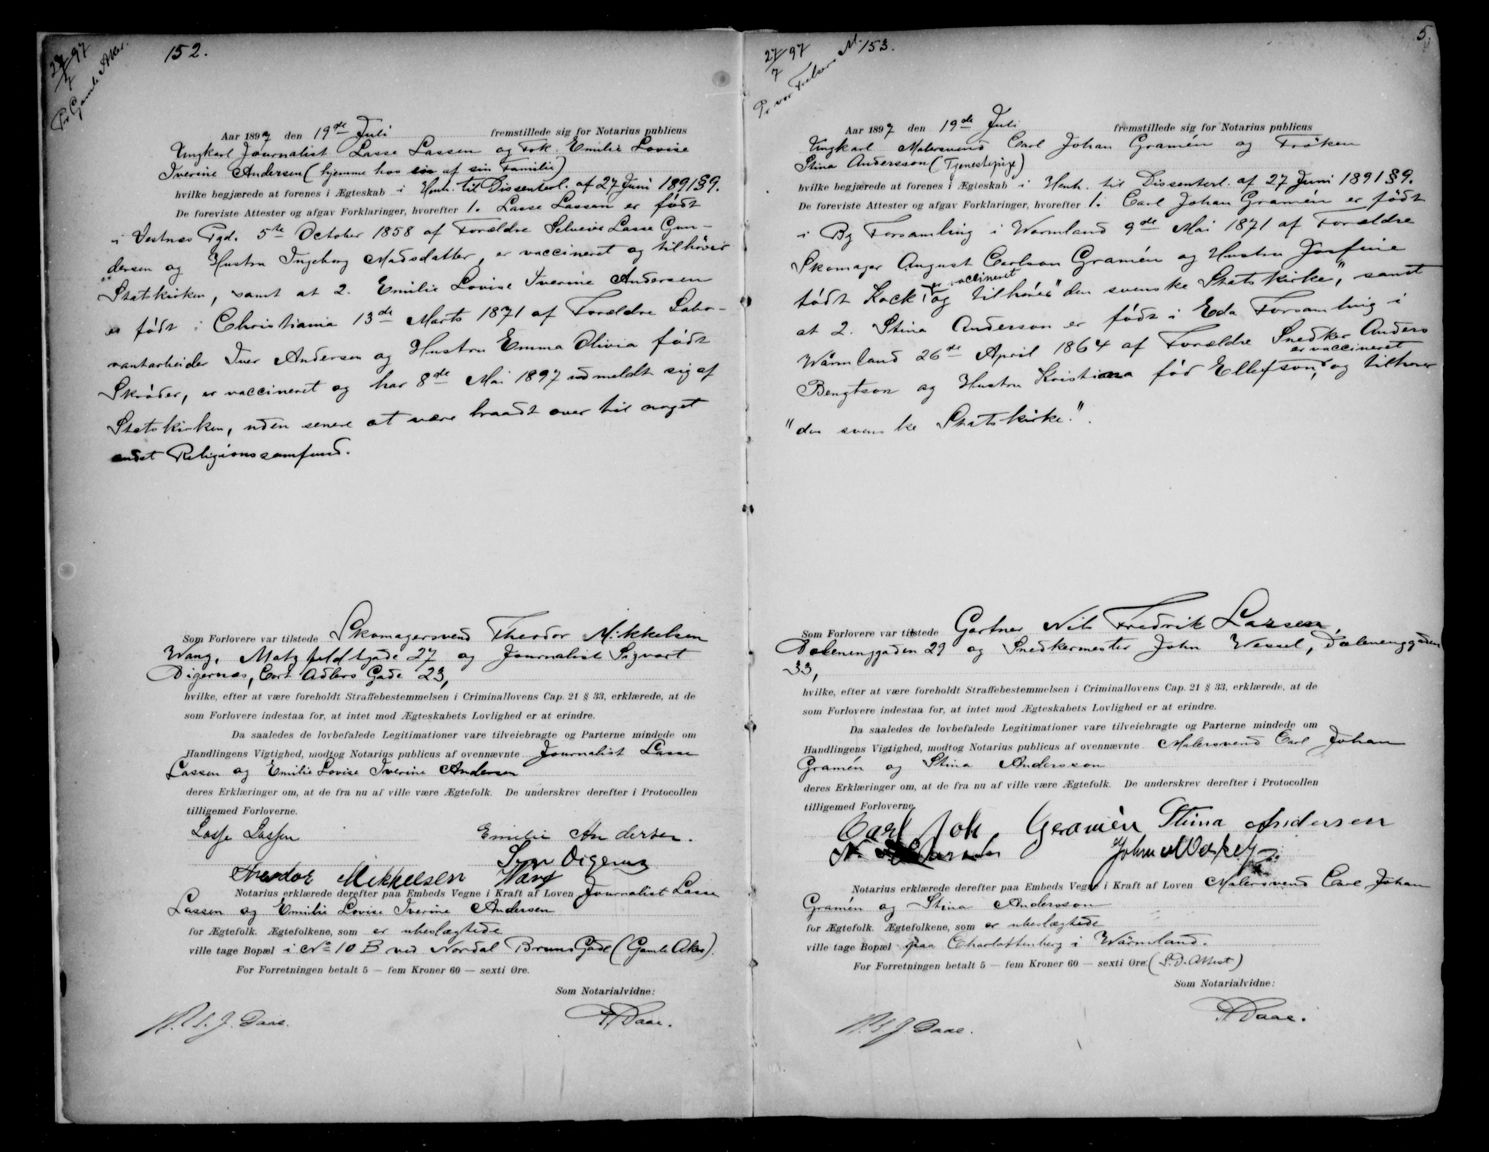 27/7 97
Pr Gamle Aker.
152.
Aar 1897 den 19de Juli fremstillede sig for Notarius publicus
Ungkarl Journalist Lasse Lassen og Frk. Emilie Lovise
Iverine Andersen (hjemme hos sin af sin Familie)
hvilke begjærede at forenes i Ægteskab i Henh. til Dissenterl. af 27 Juni 1891 § 9.
De foreviste Attester og afgav Forklaringer, hvorefter 1. Lasse Lassen er født
i Vestnæs Pgd. 5te October 1858 af Forældre Selveier Lasse Gun-
dersen og Hustru Ingeborg Madsdatter, er vaccineret og tilhører
Statskirken, samt at 2. Emilie Lovise Iverine Andersen
er født i Christiania 13de Marts 1871 af Forældre Labo-
rantarbeider Iver Andersen og Hustru Emma Olivia født
Skrøder, er vaccineret og har 8de Mai 1897 udmeldt sig af
Statskirken, uden senere at være traadt over til noget
andet Religionssamfund.
Som Forlovere var tilstede Skomagersvend Theodor Mikkelsen
Wang, Motzfeldtgade 27 og Journalist Sigvart
Digernæs, Cort Adlers Gade 23,
hvilke, efter at være foreholdt Straffebestemmelsen i Criminallovens Cap. 21 § 33, erklærede, at de
som Forlovere indestaa for, at intet mod Ægteskabets Lovlighed er at erindre.
Da saaledes de lovbefalede Legitimationer vare tilveiebragte og Parterne mindede om
Handlingens Vigtighed, modtog Notarius publicus af ovennævnte Journalist Lasse
Lassen og Emilie Lovise Iverine Andersen
deres Erklæringer om, at de fra nu af ville være Ægtefolk. De underskrev derefter i Protocollen
tilligemed Forloverne.
Lasse Lassen Emilie Andersen.
Sigv Digernæs
Theodor Mikkelsen Wang
Notarius erklærede derefter paa Embeds Vegne i Kraft af Loven Journalist Lasse
Lassen og Emilie Lovise Iverine Andersen
for Ægtefolk. Ægtefolkene, som er ubeslægtede
ville tage Bopæl i No 10 B ved Nordal Bruns Gade (Gamle Aker).
For Forretningen betalt 5 — fem Kroner 60 — sexti Øre.
Som Notarialvidne:
Daae.
Daae.
27/7 97
Pr vor Frelsers M.
153.
5
Aar 1897 den 19de Juli fremstillede sig for Notarius publicus
Ungkarl Malersvend Carl Johan Gramén og Frøken
Stina Andersson (Tjenestepige)
hvilke begjærede at forenes i Ægteskab i Henh. til Dissenterl. af 27 Juni 1891 § 9.
De foreviste Attester og afgav Forklaringer, hvorefter 1. Carl Johan Gramén er født
i By Forsamling i Wärmland 9de Mai 1871 af Forældre
Skomager August Carlson Gramén og Hustru Josfine
født Kock, er vaccineret og tilhører "den svenske Statskirke", samt
at 2. Stina Anderson er født i Eda Forsamling i
Wärmland 26de April 1864 af Forældre Snedker Anders
Bengtson og Hustru Kristiana før Ellefson, er vaccineret og tilhører
"den svenske Statskirke."
Som Forlovere var tilstede Gartner Nils Fredrik Larsen,
Dælenenggaden 29 og Snedkermester John Wessel, Dælenenggaden
33,
hvilke, efter at være foreholdt Straffebestemmelsen i Criminallovens Cap. 21 § 33, erklærede, at de
som Forlovere indestaa for, at intet mod Ægteskabets Lovlighed er at erindre.
Da saaledes de lovbefalede Legitimationer vare tilveiebragte og Parterne mindede om
Handlingens Vigtighed, modtog Notarius publicus af ovennævnte Malersvend Carl Johan
Gramén og Stina Andersson
deres Erklæringer om, at de fra nu af ville være Ægtefolk. De underskrev derefter i Protocollen
tilligemed Forloverne.
Carl Joh Gramén Stina Andersen
John Wessel
Notarius erklærede derefter paa Embeds Vegne i Kraft af Loven Malersvend Carl Johan
Gramén og Stina Andersson
for Ægtefolk. Ægtefolkene, som er ubeslægtede
ville tage Bopæl paa Charlottenberg i Wärmland.
For Forretningen betalt 5 — fem Kroner 60 — sexti Øre. (S. D. Attest)
Som Notarialvidne:
Daae.
Daae.